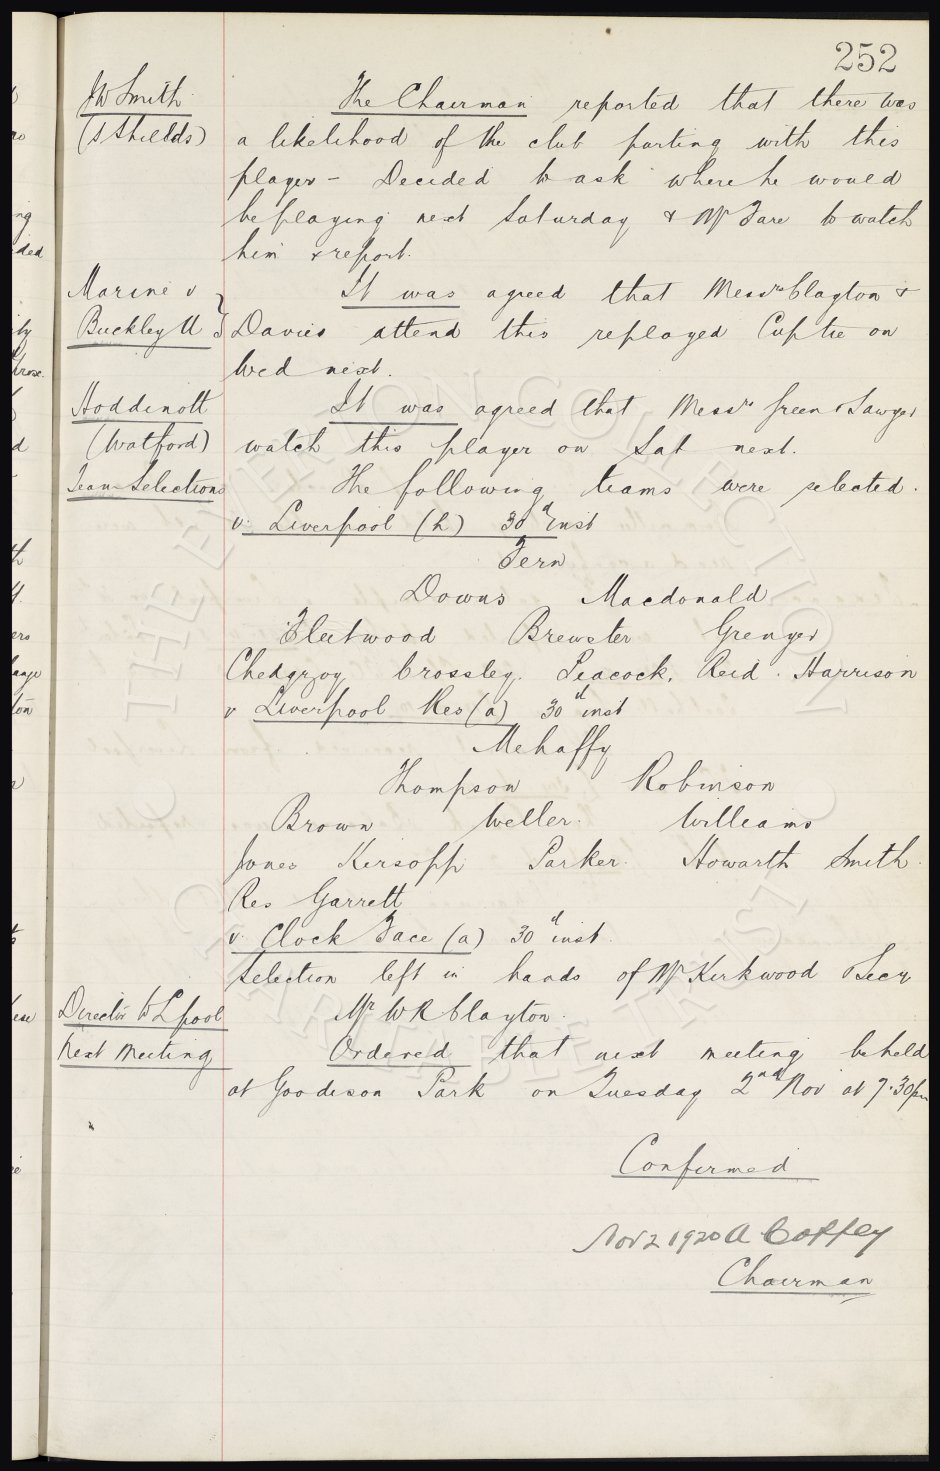 252
J W Smith
(S Shields)
The Chairman reported that there was
a likelihood of the club parting with this
player – Decided to ask where he would
be playing next Saturday & Mr Fare to watch
him & report.
Marine v
Buckley U
It was agreed that Messrs Clayton &
Davies attend this replayed Cup tie on
Wed next.
Hoddinott
(Watford)
It was agreed that Messrs Green & Sawyer
watch this player on Sat next.
Team Selections
The following teams were selected.
v. Liverpool (h) 30th inst
Fern
Downs Macdonald
Fleetwood Brewster Grenyer
Chedgzoy Crossley. Peacock. Reid. Harrison
v Liverpool Res (a) 30th inst
Mehaffy
Thompson Robinson
Brown Weller. Williams
Jones Kirsopp Parker. Howarth Smith.
Res Garrett
v. Clock Face (a) 30th inst.
Selection left in hands of Mr Kirkwood & Secy
Director to L'pool
Mr W R Clayton.
Next Meeting
Ordered that next meeting be held
at Goodison Park on Tuesday 2nd Nov at 7.30pm
Confirmed
Nov 2 1920 A Coffey
Chairman
THE EVERTON COLLECTION CHARITABLE TRUST